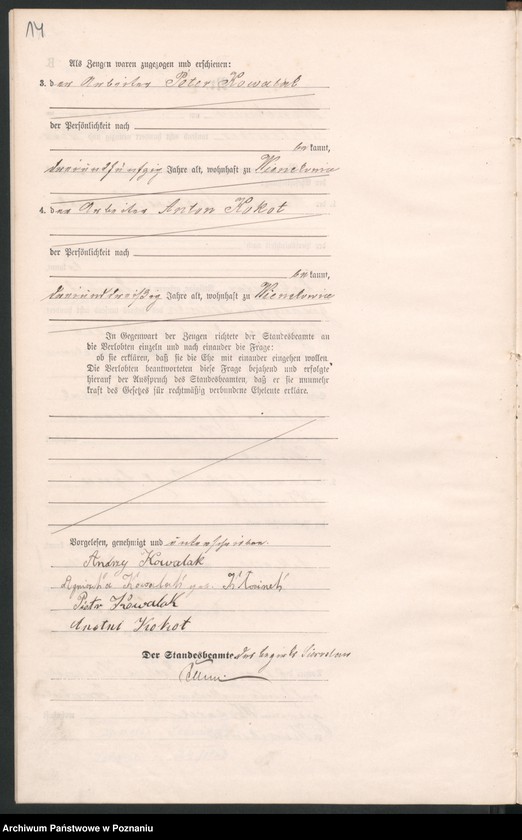 14
Als Zeugen waren zugezogen und erschienen:
3. der Arbeiter Peter Kowalak
der Persönlichkeit nach
be kannt,
dreiundfünfzig Jahre alt, wohnhaft zu
4. der Arbeiter Anton Kokot
der Persönlichkeit nach
be kannt,
dreiunddreißig Jahre alt, wohnhaft zu
In Gegenwart der Zeugen richtete der Standesbeamte an
die Verlobten einzeln und nach einander die Frage:
ob sie erklären, daß sie die Ehe mit einander eingehen wollen.
Die Verlobten beantworteten diese Frage bejahend und erfolgte
hierauf der Ausspruch des Standesbeamten, daß er sie nunmehr
kraft des Gesetzes für rechtmäßig verbundene Eheleute erkläre.
Vorgelesen, genehmigt und unterschrieben.
Andrzy Kowalak
geb.
Piotr Kowalak
Kokot
Der Standesbeamte des Bezirks
Archiwum Państwowe w Poznaniu